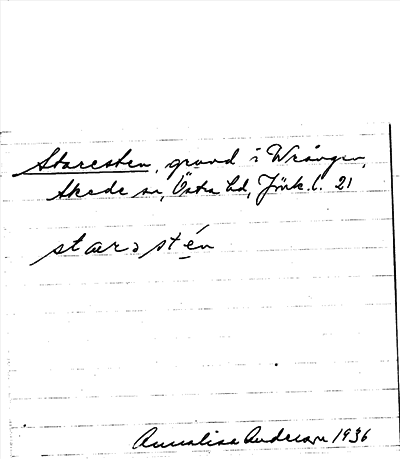 Staresten, grund i Wrången,
Skede sn, Östra hd, Jönk. l. 21
starə stén
Annalisa Andersson 1936